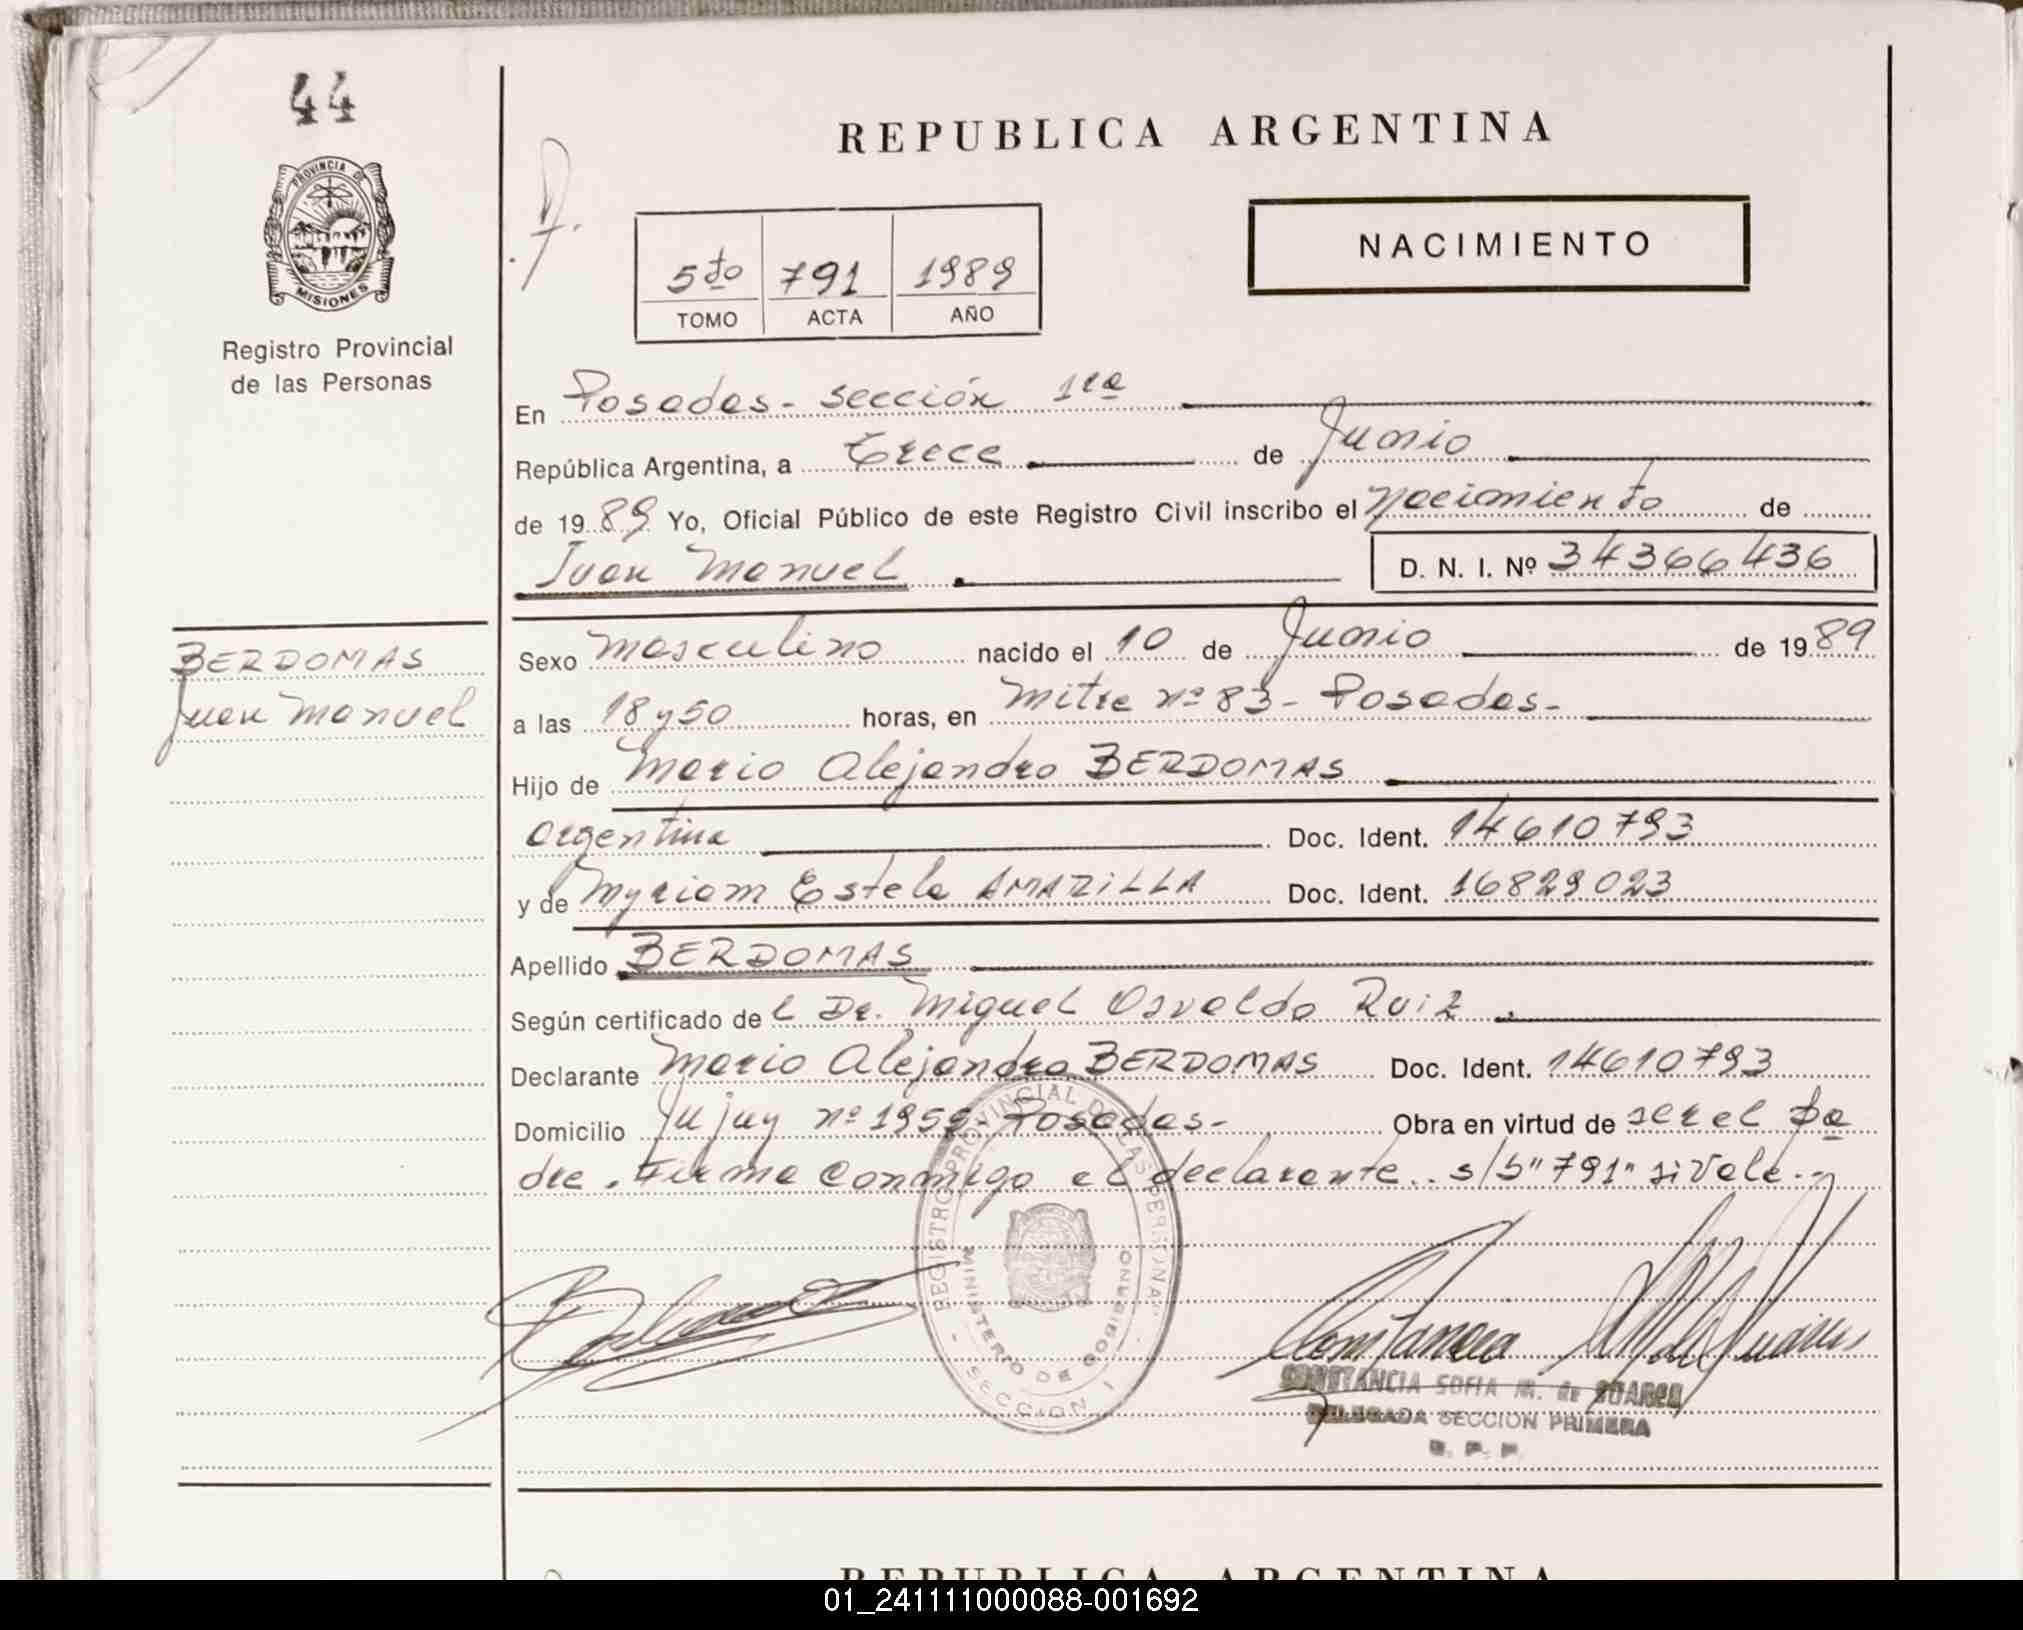 44
PROVINCIA DE
MISIONES
Registro Provincial
de las Personas
REPUBLICA ARGENTINA
NACIMIENTO
5to 791 1989
TOMO ACTA AÑO
En Posadas - sección 1ra
República Argentina, a Trece de Junio
de 1989 Yo, Oficial Público de este Registro Civil inscribo el nacimiento de
Juan Manuel D. N. I. Nº 34366436
BERDOMAS
Juan Manuel
Sexo masculino nacido el 10 de Junio de 1989
a las 18 y 50 horas, en Mitre nº 83 - Posadas -
Hijo de Mario Alejandro BERDOMAS
argentina Doc. Ident. 14610793
y de Myriam Estela AMARILLA Doc. Ident. 16829023
Apellido BERDOMAS
Según certificado del Dr. Miguel Osvaldo Ruiz .
Declarante Mario Alejandro BERDOMAS Doc. Ident. 14610793
Domicilio Jujuy nº 1959 - Posadas - Obra en virtud de ser el pa
dre . Firma conmigo el declarante .. s/b "791" si vale .-
REGISTRO PROVINCIAL DE LAS PERSONAS
MINISTERIO DE GOBIERNO
- SECCION I -
CONSTANCIA SOFIA M. de SUAREZ
DELEGADA SECCION PRIMERA
R. P. P.
REPUBLICA ARGENTINA
01_241111000088-001692